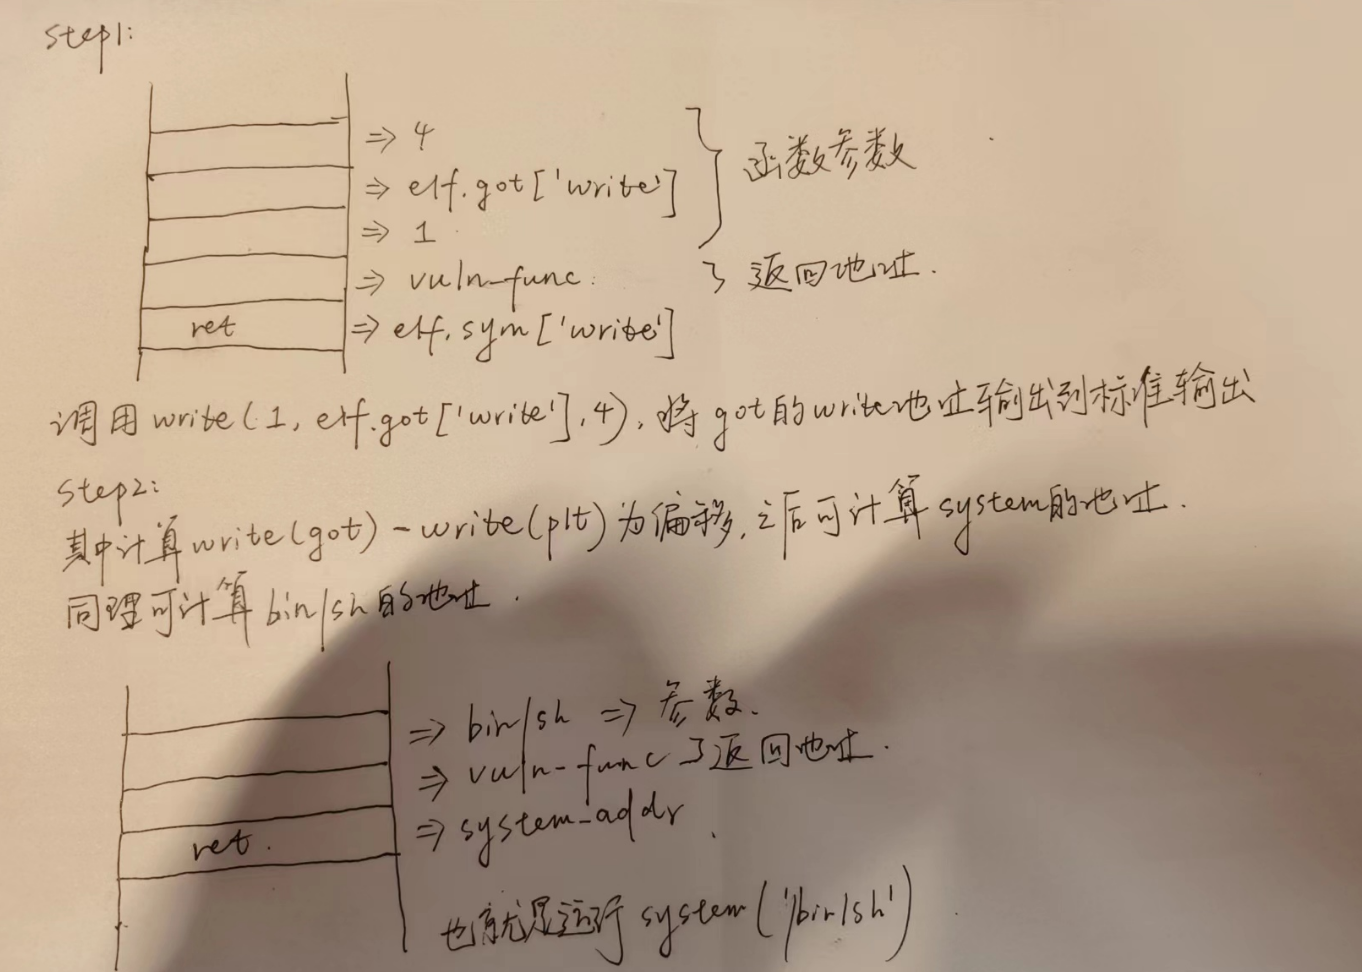 step1:
⇒ 4
⇒ elf.got['write']
⇒ 1
函数参数
⇒ vuln-func. 返回地址.
ret ⇒ elf.sym['write']
调用write(1, elf.got['write'],4),将got的write地址输出到标准输出
step2:
其中计算write(got)-write(plt)为偏移,之后可计算system的地址.
同理可计算bin/sh的地址.
⇒ bin/sh ⇒ 参数.
⇒ vuln-func 返回地址.
ret. ⇒ system-addr
也就是运行system('/bin/sh')